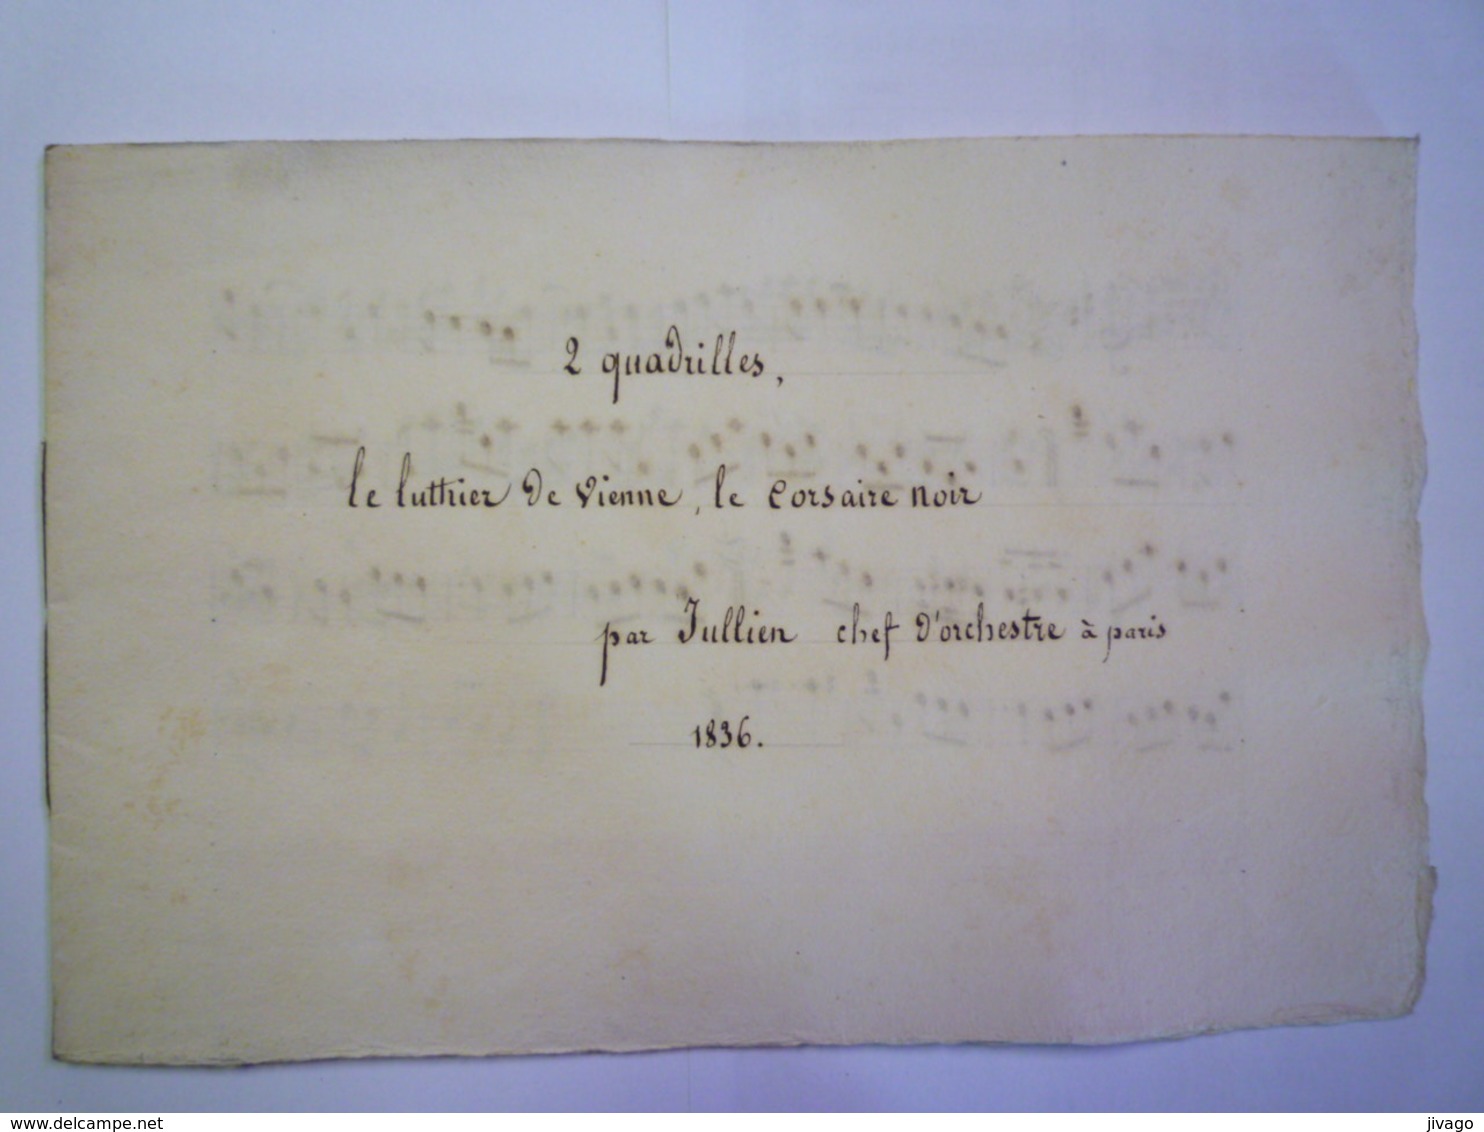 2 quadrilles,
le luthier de vienne, le corsaire noir
par Jullien chef d'orchestre à paris
1836.
delcampe.net
jivago